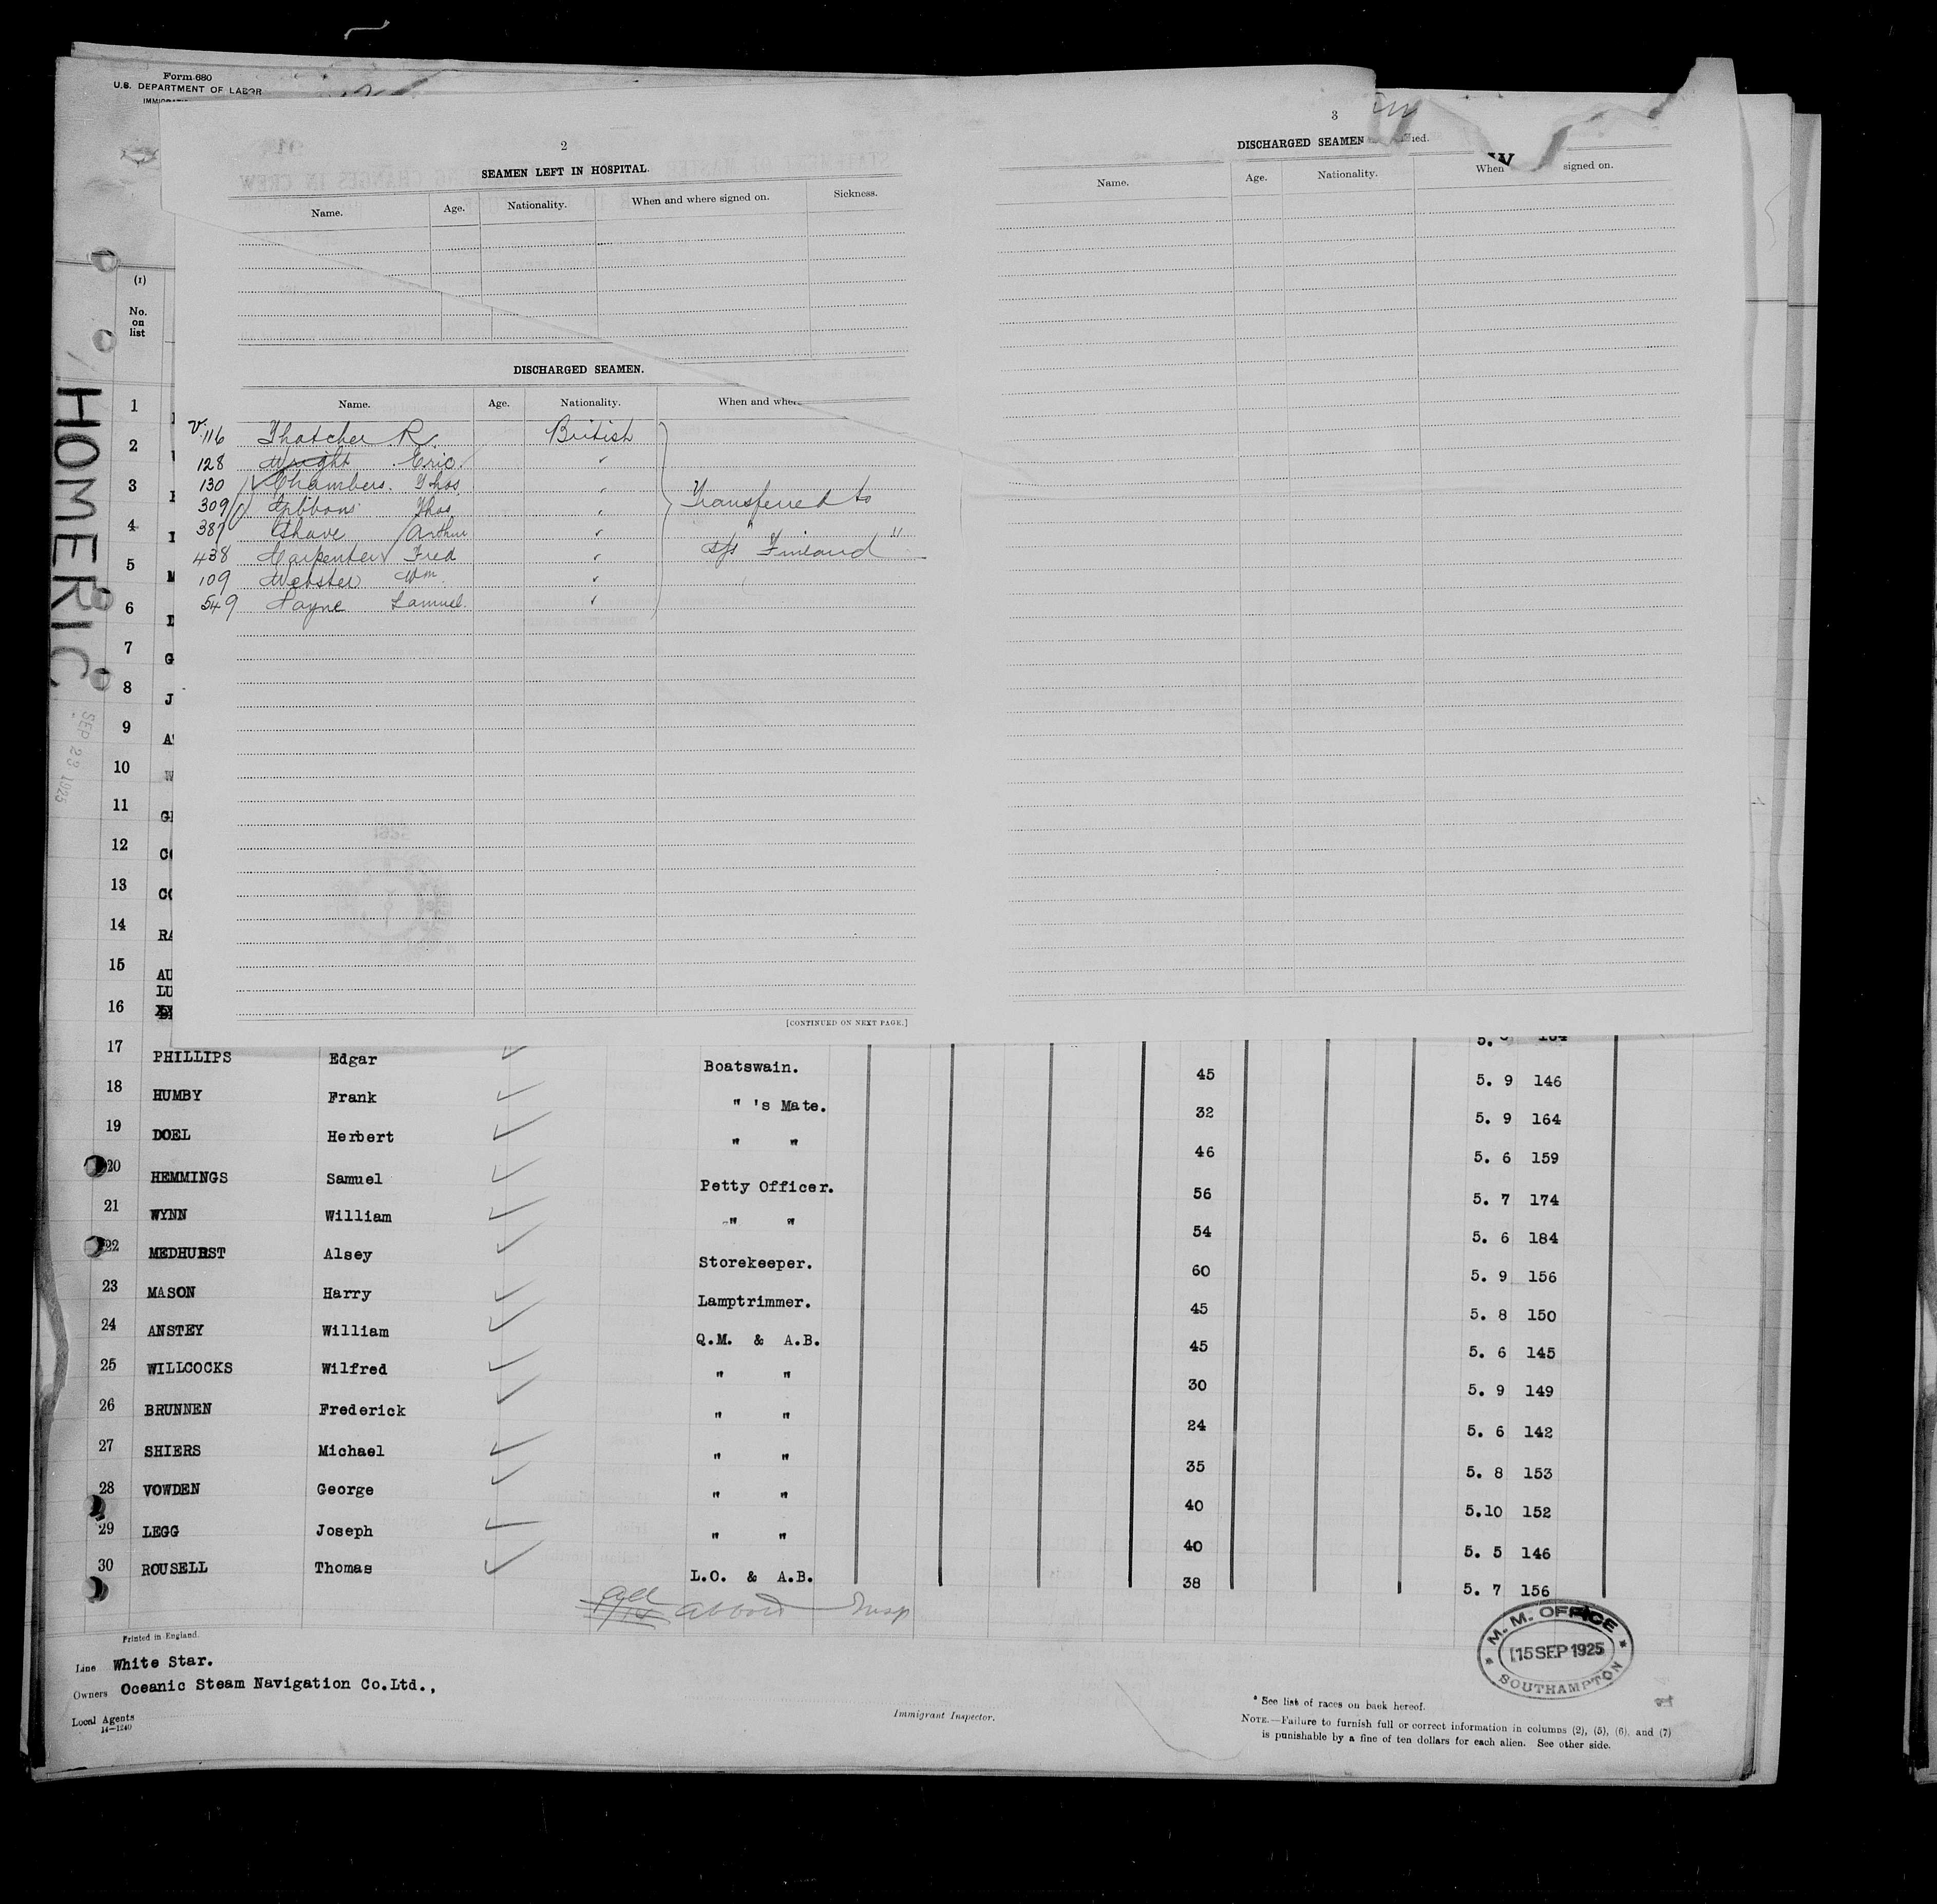 Form 680
U.S. DEPARTMENT OF LABOR
2
SEAMEN LEFT IN HOSPITAL.
Name. Age. Nationality. When and where signed on. Sickness.
DISCHARGED SEAMEN.
Name. Age. Nationality. When and where
116 Thatcher R. British
128 Wright Eric "
130 Chambers. Thos "
309 Gibbons Thos "
387 Shave Arthur "
438 Carpenter Fred "
109 Webster Wm. "
549 Payne Samuel. "
Transferred to
s/s "Finland"
[CONTINUED ON NEXT PAGE.]
3
DISCHARGED SEAMEN
Name. Age. Nationality. When signed on.
(1)
No.
on
list
HOMERIC
SEP 23 1925
1
2
3
4
5
6
7
8
9
10
11
12
13
14
15
16
17 PHILLIPS Edgar Boatswain. 45 5. 9 146
18 HUMBY Frank " 's Mate. 32 5. 9 164
19 DOEL Herbert " " 46 5. 6 159
20 HEMMINGS Samuel Petty Officer. 56 5. 7 174
21 WYNN William " " 54 5. 6 184
22 MEDHURST Alsey Storekeeper. 60 5. 9 156
23 MASON Harry Lamptrimmer. 45 5. 8 150
24 ANSTEY William Q.M. & A.B. 45 5. 6 145
25 WILLCOCKS Wilfred " " 30 5. 9 149
26 BRUNNEN Frederick " " 24 5. 6 142
27 SHIERS Michael " " 35 5. 8 153
28 VOWDEN George " " 40 5.10 152
29 LEGG Joseph " " 40 5. 5 146
30 ROUSELL Thomas L.O. & A.B. 38 5. 7 156
all aboard Insp
Printed in England.
Line White Star.
Owners Oceanic Steam Navigation Co.Ltd.,
Local Agents
14—1240
Immigrant Inspector.
M. M. OFFICE
15 SEP 1925
SOUTHAMPTON
* See list of races on back hereof.
NOTE.—Failure to furnish full or correct information in columns (2), (5), (6), and (7)
is punishable by a fine of ten dollars for each alien. See other side.